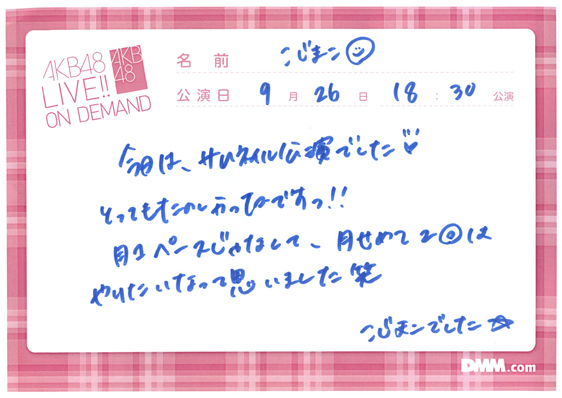 AKB48
LIVE!!
ON DEMAND
AKB
48
名前 こじまこ
公演日 9月26日 18:30公演
今日は、サムネイル公演でした
とってもたのしかったですっ!!
月1ペースじゃなくて、月せめて2回は
やりたいなって思いました笑
こじまこでした☆
DMM.com